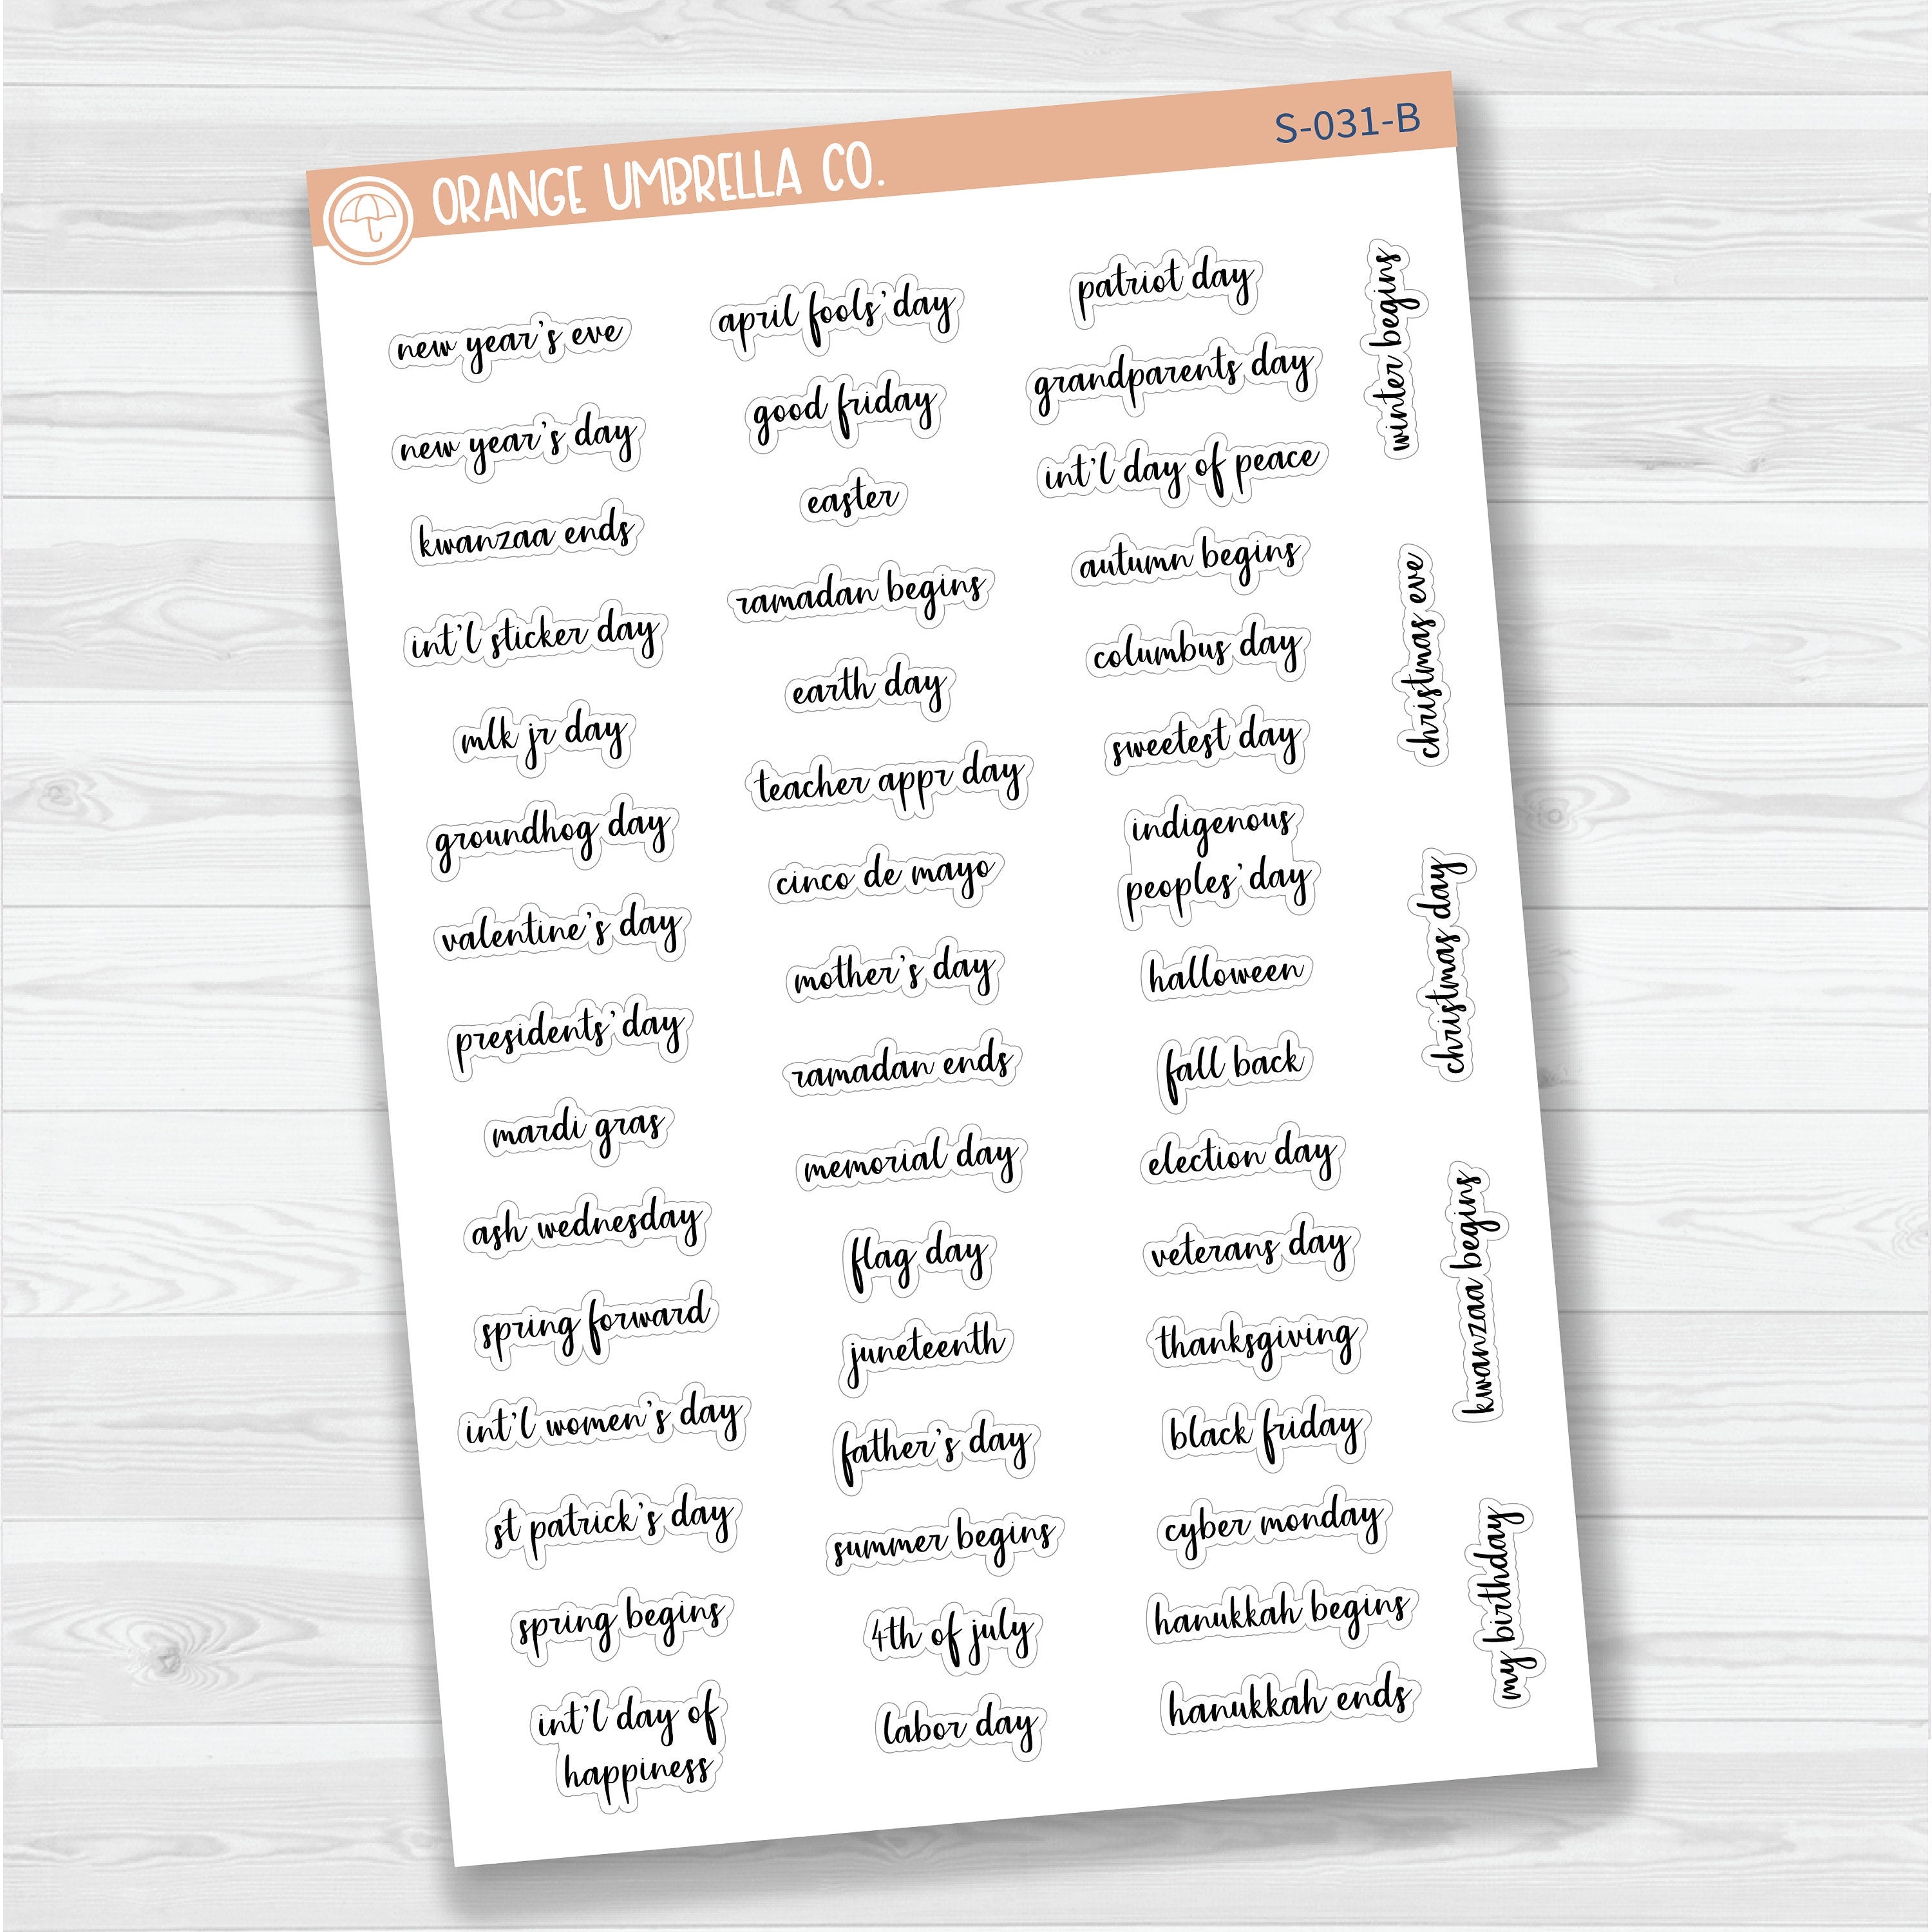 ORANGE UMBRELLA CO.
S-031-B
new year's eve
new year's day
kwanzaa ends
int'l sticker day
mlk jr day
groundhog day
valentine's day
presidents' day
mardi gras
ash wednesday
spring forward
int'l women's day
st patrick's day
spring begins
int'l day of
happiness
april fools' day
good friday
easter
ramadan begins
earth day
teacher appr day
cinco de mayo
mother's day
ramadan ends
memorial day
flag day
juneteenth
father's day
summer begins
4th of july
labor day
patriot day
grandparents day
int'l day of peace
autumn begins
columbus day
sweetest day
indigenous
peoples' day
halloween
fall back
election day
veterans day
thanksgiving
black friday
cyber monday
hanukkah begins
hanukkah ends
winter begins
christmas eve
christmas day
kwanzaa begins
my birthday